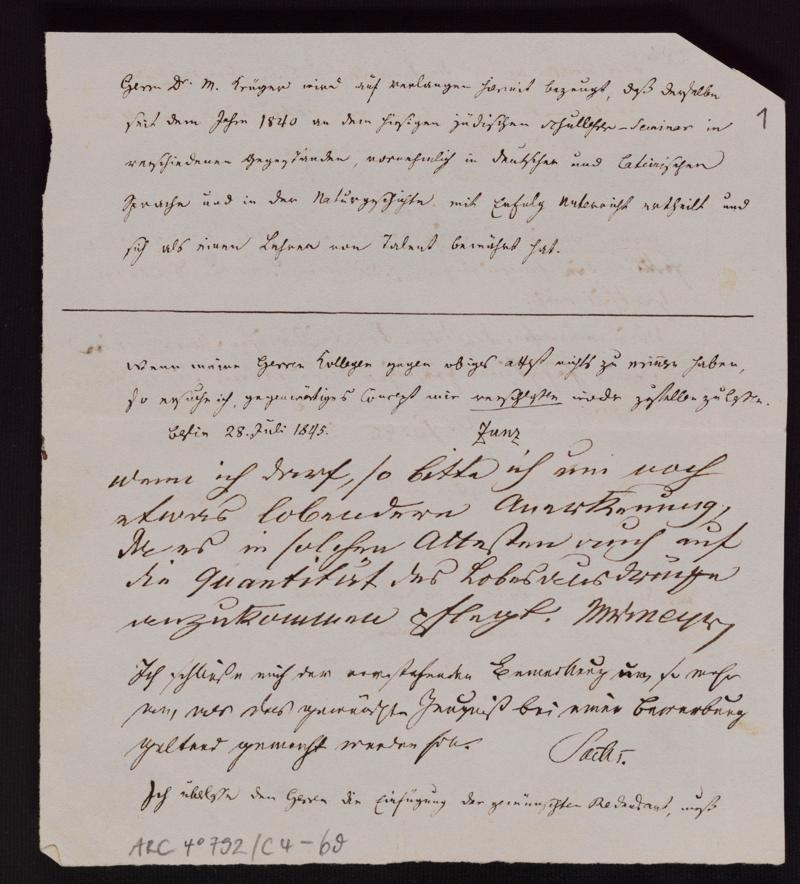 Herrn Dr. M. Krüger wird auf Verlangen hiermit bezeugt, daß derselbe
seit dem Jahre 1840 an dem hiesigen jüdischen Schullehrer-Seminar in
verschiedenen Gegenständen, vornehmlich in deutscher und lateinischer
Sprache und in der Naturgeschichte mit Erfolg Unterricht ertheilt und
sich als einen Lehrer von Talent bewährt hat.
1
Wenn meine Herren Kollegen gegen obiges Attest nichts zu erinnern haben,
so ersuche ich, gegenwärtiges Concept mir verschlossen wieder zustellen zu lassen.
Berlin 28. Juli 1845. Zunz
wenn ich darf, so bitte ich um noch
etwas lobendere Anerkennung,
da es in solchen Attesten auch auf
die Quantität des Lobesausdrucks
anzukommen pflegt.
Ich schließe mich der vorstehenden Bemerkung um so mehr
an, als das gewünschte Zeugniß bei einer Bewerbung
geltend gemacht werden soll. Sachs.
Ich überlasse den Herren die Einfügung der gewünschten Redensart, muß
ARC 4° 792/C4-6d